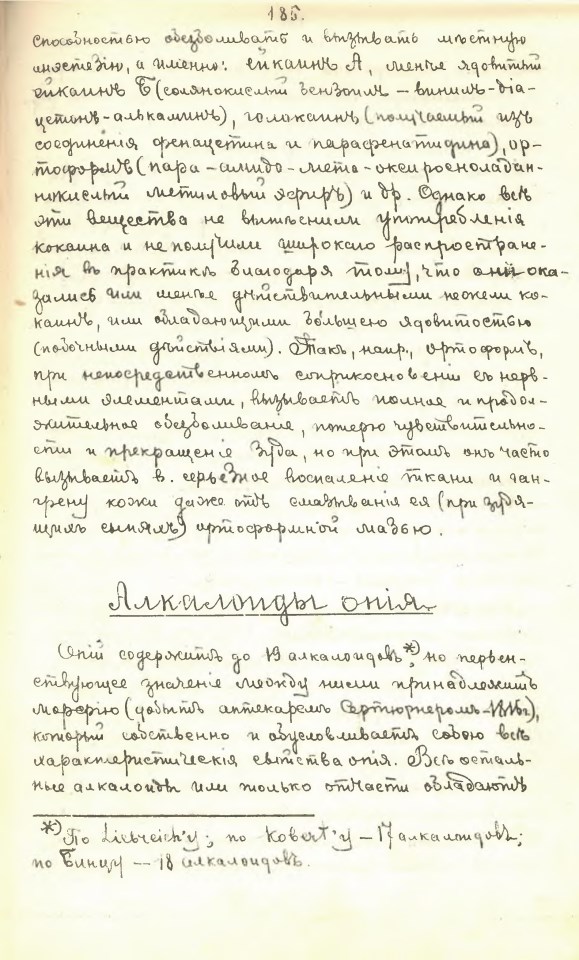 185.
способностью обезболивать и вызывать мѣстную
анэстезію, а именно: ейкаинъ А, менѣе ядовитый
ейкаинъ Б (солянокислый бензоилъ – винилъ-діа-
цетонъ-алькаминъ), голокаинъ (получаемый изъ
соединенія фенацетина и парафенатидина), ор-
тоформъ (пара-амидо-мета-оксибензойладан-
нокислый метиловый эфиръ) и др. Однако всѣ
эти вещества не вытѣснили употребленія
кокаина и не получили широкаго распростране-
нія въ практикѣ благодаря тому, что они ока-
зались или менѣе дѣйствительными нежели ко-
каинъ, или обладающими большею ядовитостью
(побочными дѣйствіями). Такъ, напр., ортоформъ,
при непосредственномъ соприкосновеніи съ нерв-
ными элементами, вызываетъ полное и продол-
жительное обезболиваніе, потерю чувствительно-
сти и прекращеніе зуда, но при этомъ онъ часто
вызываетъ в. серьезное воспаленіе ткани и ган-
грену кожи даже отъ смазыванія ея (при зудя-
щихъ сыпяхъ) ортоформной мазью.
Алкалоиды опія.
Опій содержитъ до 19 алкалоидовъ *), но первен-
ствующее значеніе между ними принадлежитъ
морфію (добытъ аптекаремъ Сертюрнеромъ
который собственно и обусловливаетъ собою всѣ
характеристическія свойства опія. Всѣ осталь-
ные алкалоиды или только отчасти обладаютъ
*) По Liebreich'у; по Kobert'у – 17 алкалоидовъ;
по Бинцу — 18 алкалоидовъ.